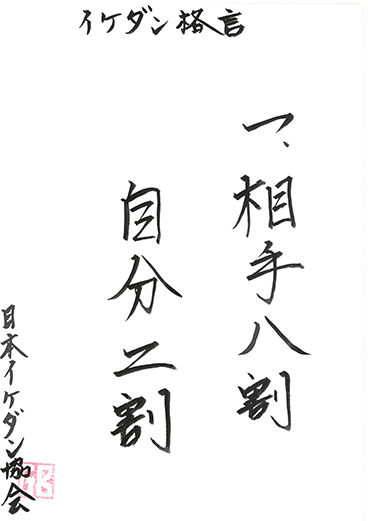 イケダン格言
一、相手八割
自分二割
日本イケダン協会
GB